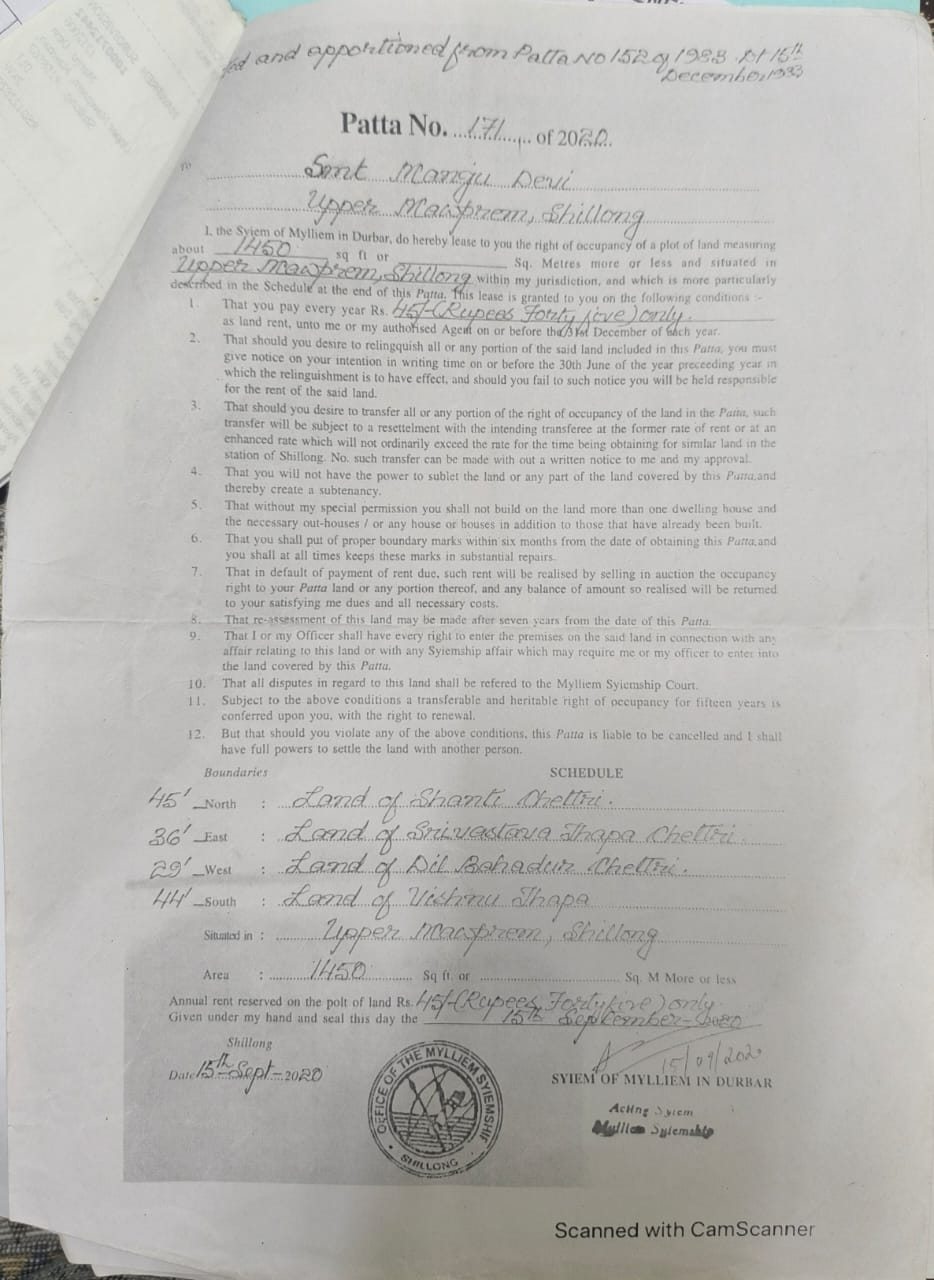 ed and apportioned from Patta No 152 of 1983 Dt 15th
December 1983
Patta No. 171 of 2020.
To
Smt Manju Devi
Upper Mawprem, Shillong
I, the Syiem of Mylliem in Durbar, do hereby lease to you the right of occupancy of a plot of land measuring
about 1450 sq ft or Sq. Metres more or less and situated in
Upper Mawprem, Shillong within my jurisdiction, and which is more particularly
described in the Schedule at the end of this Patta. This lease is granted to you on the following conditions :-
1. That you pay every year Rs. 45/-(Rupees Forty five) only.
as land rent, unto me or my authorised Agent on or before the 31st December of each year.
2. That should you desire to relingquish all or any portion of the said land included in this Patta, you must
give notice on your intention in writing time on or before the 30th June of the year preceeding year in
which the relinguishment is to have effect, and should you fail to such notice you will be held responsible
for the rent of the said land.
3. That should you desire to transfer all or any portion of the right of occupancy of the land in the Patta, such
transfer will be subject to a resettelment with the intending transferee at the former rate of rent or at an
enhanced rate which will not ordinarily exceed the rate for the time being obtaining for similar land in the
station of Shillong. No. such transfer can be made with out a written notice to me and my approval.
4. That you will not have the power to sublet the land or any part of the land covered by this Patta,and
thereby create a subtenancy.
5. That without my special permission you shall not build on the land more than one dwelling house and
the necessary out-houses / or any house or houses in addition to those that have already been built.
6. That you shall put of proper boundary marks within six months from the date of obtaining this Patta,and
you shall at all times keeps these marks in substantial repairs.
7. That in default of payment of rent due, such rent will be realised by selling in auction the occupancy
right to your Patta land or any portion thereof, and any balance of amount so realised will be returned
to your satisfying me dues and all necessary costs.
8. That re-assessment of this land may be made after seven years from the date of this Patta.
9. That I or my Officer shall have every right to enter the premises on the said land in connection with any
affair relating to this land or with any Syiemship affair which may require me or my officer to enter into
the land covered by this Patta.
10. That all disputes in regard to this land shall be refered to the Mylliem Syiemship Court.
11. Subject to the above conditions a transferable and heritable right of occupancy for fifteen years is
conferred upon you, with the right to renewal.
12. But that should you violate any of the above conditions, this Patta is liable to be cancelled and I shall
have full powers to settle the land with another person.
Boundaries SCHEDULE
45' North : Land of Shanti Chettri.
36' East : Land of Srivastava Thapa Chettri.
29' West : Land of Dil Bahadur Chettri.
44' South : Land of Vishnu Thapa
Situated in : Upper Mawprem, Shillong
Area : 1450 Sq ft. or Sq. M More or less
Annual rent reserved on the polt of land Rs. 45/-(Rupees Forty five) only
Given under my hand and seal this day the 15th September-2020
Shillong
Date 15th-Sept-2020
15/09/2020
SYIEM OF MYLLIEM IN DURBAR
Acting Syiem
Mylliem Syiemship
OFFICE OF THE MYLLIEM SYIEMSHIP
SHILLONG
Scanned with CamScanner